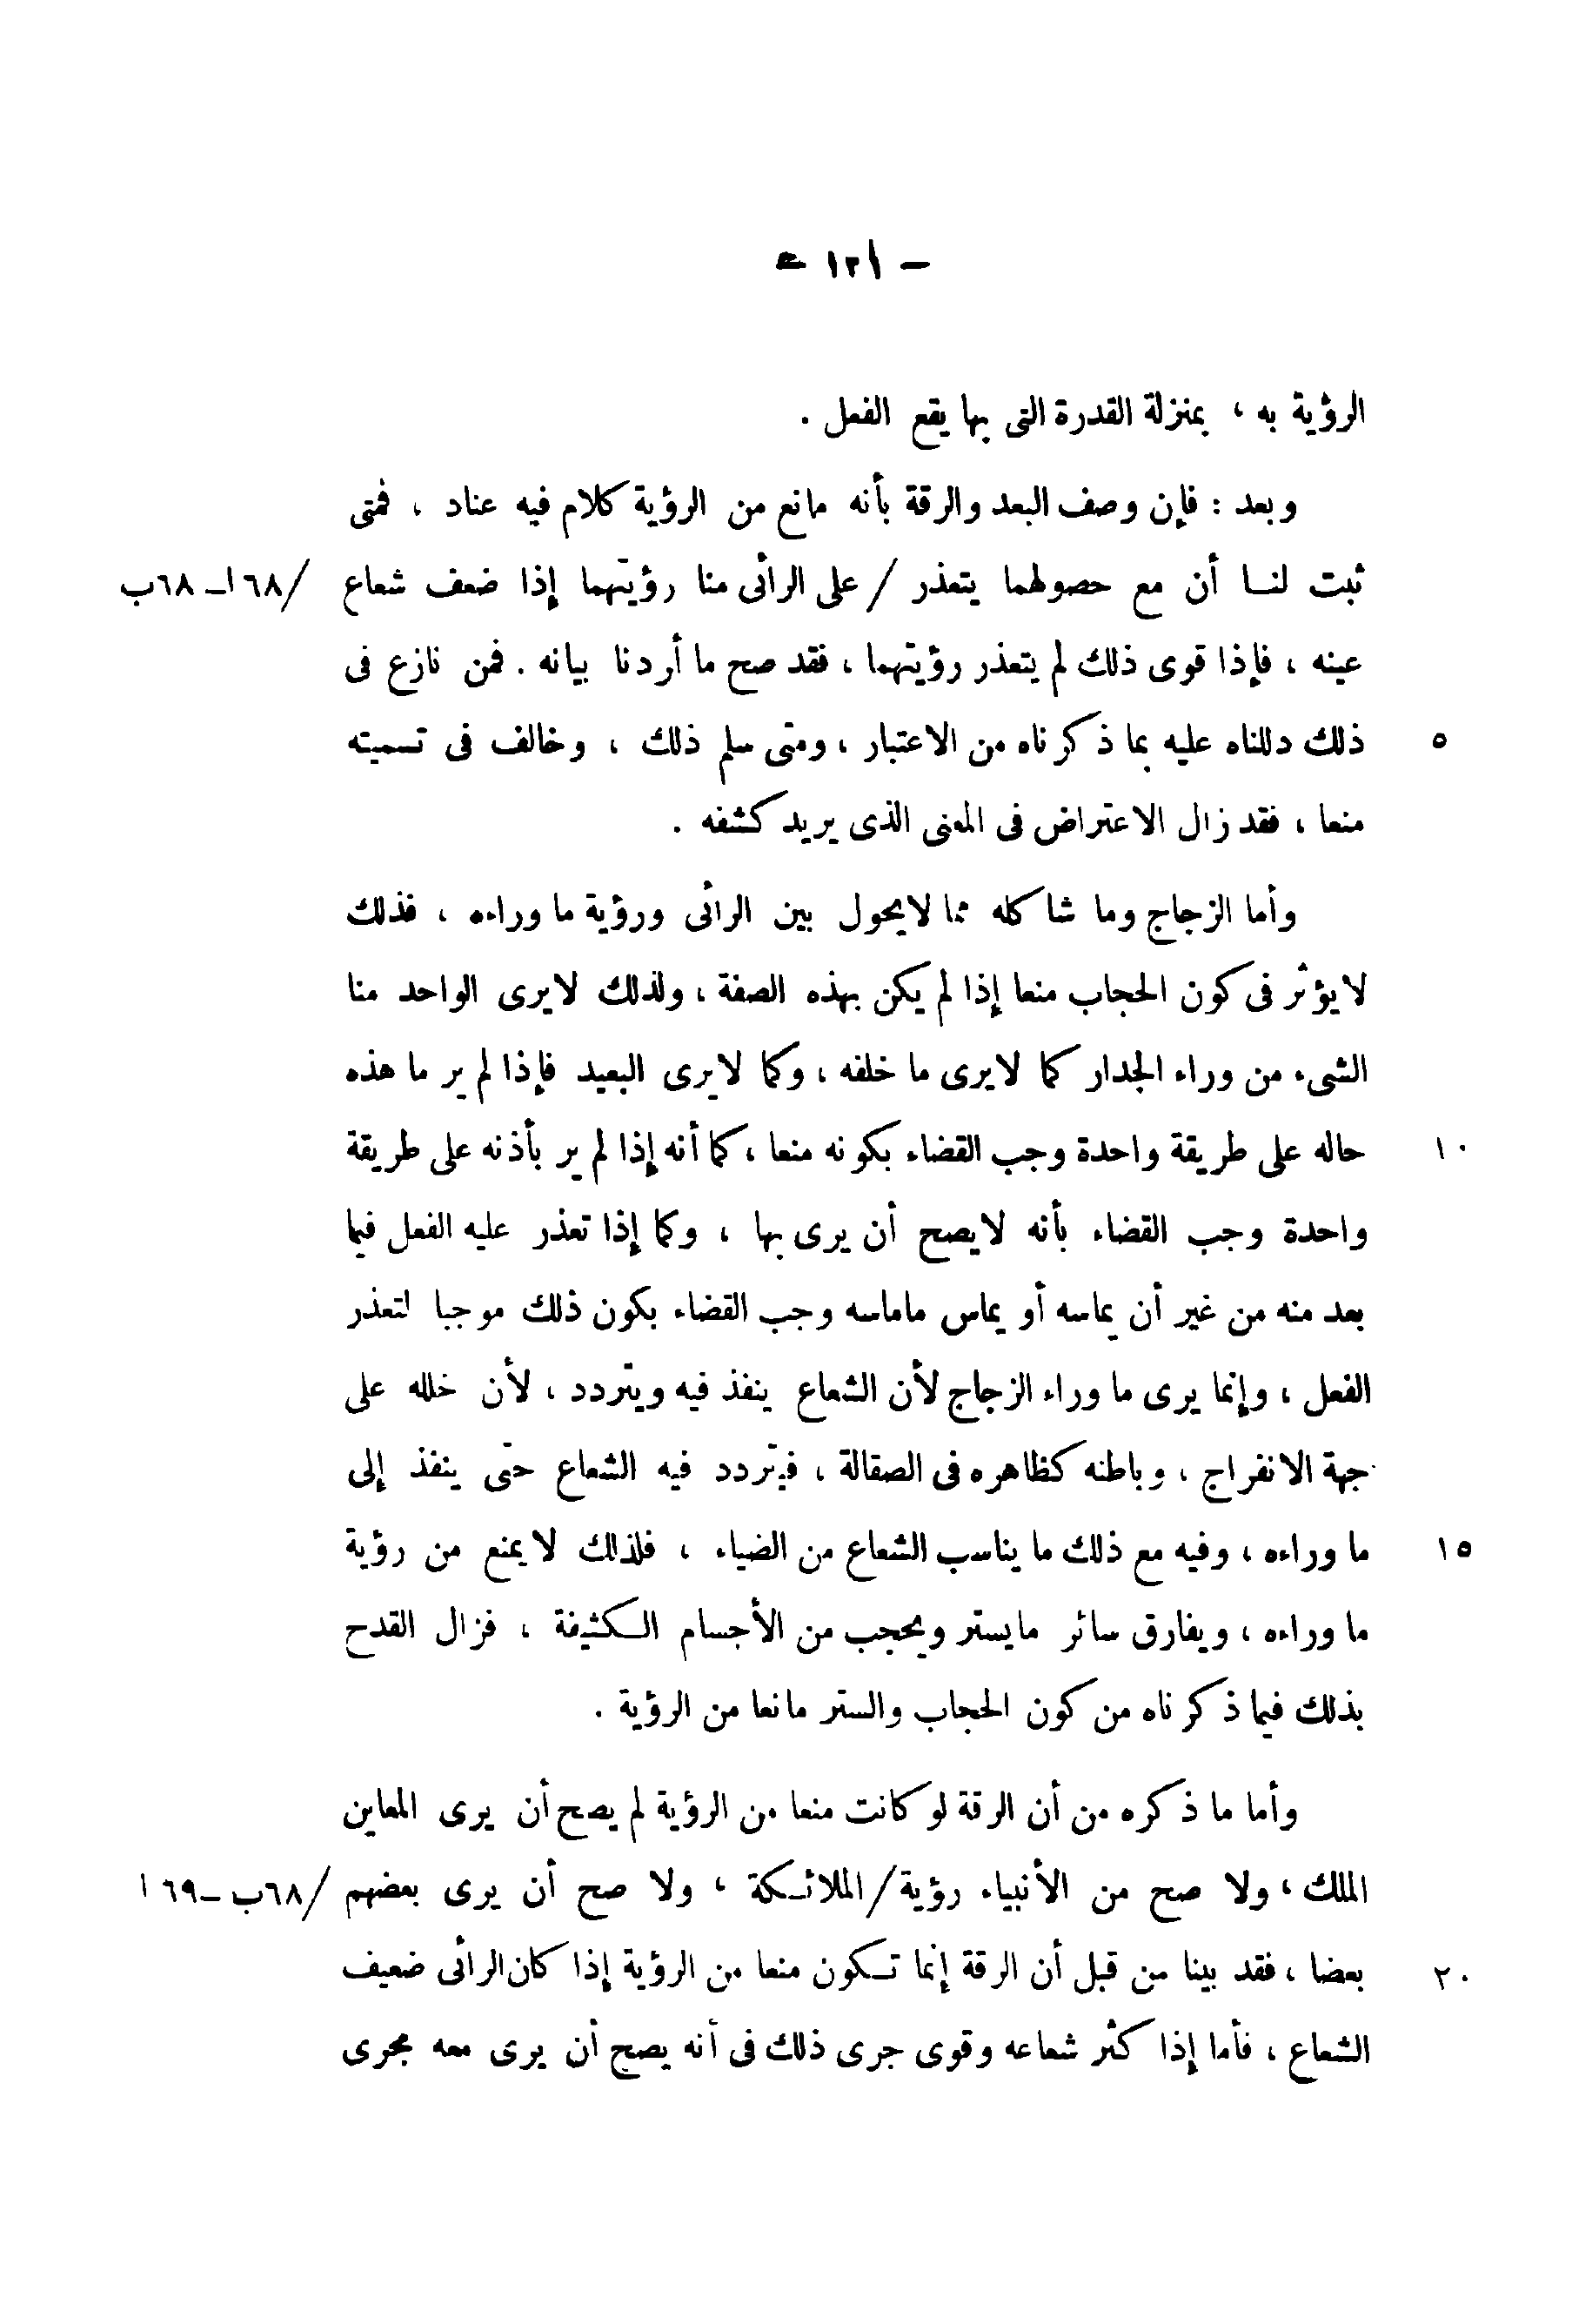 — ١٢١ —
الرؤية به ، بمنزلة القدرة التى بها يقع الفعل .
وبعد : فإن وصف البعد والرقة بأنه مانع من الرؤية كلام فيه عناد ، فمتى
ثبت لنا أن مع حصولهما يتعذر / على الرائى منا رؤيتهما إذا ضعف شعاع /٦٨ا ــ ٦٨ب
عينه ، فإذا قوى ذلك لم يتعذر رؤيتهما ، فقد صح ما أردنا بيانه . فمن نازع فى
ذلك دللناه عليه بما ذكرناه من الاعتبار ، ومتى سلم ذلك ، وخالف فى تسميته ٥
منعا ، فقد زال الاعتراض فى المعنى الذى يريد كشفه .
وأما الزجاج وما شاكله مما لايحول بين الرائى ورؤية ما وراءه ، فذلك
لايؤثر فى كون الحجاب منعا إذا لم يكن بهذه الصفة ، ولذلك لايرى الواحد منا
الشىء من وراء الجدار كما لايرى ما خلفه ، وكما لايرى البعيد فإذا لم ير ما هذه
حاله على طريقة واحدة وجب القضاء بكونه منعا ، كما أنه إذا لم ير بأذنه على طريقة ١٠
واحدة وجب القضاء بأنه لايصح أن يرى بها ، وكما إذا تعذر عليه الفعل فيما
بعد منه من غير أن يماسه أو يماس ماماسه وجب القضاء بكون ذلك موجبا لتعذر
الفعل ، وإنما يرى ما وراء الزجاج لأن الشعاع ينفذ فيه ويتردد ، لأن خلله على
جهة الانفراج ، وباطنه كظاهره فى الصقالة ، فيتردد فيه الشعاع حتى ينفذ إلى
ما وراءه ، وفيه مع ذلك ما يناسب الشعاع من الضياء ، فلذلك لايمنع من رؤية ١٥
ما وراءه ، ويفارق سائر مايستر ويحجب من الأجسام الكثيفة ، فزال القدح
بذلك فيما ذكرناه من كون الحجاب والستر مانعا من الرؤية .
وأما ما ذكره من أن الرقة لو كانت منعا من الرؤية لم يصح أن يرى المعاين
الملك ، ولا صح من الأنبياء رؤية/الملائكة ، ولا صح أن يرى بعضهم /٦٨ب ــ ٦٩ا
بعضا ، فقد بينا من قبل أن الرقة إنما تكون منعا من الرؤية إذا كان الرائى ضعيف ٢٠
الشعاع ، فأما إذا كثر شعاعه وقوى جرى ذلك فى أنه يصح أن يرى معه مجرى